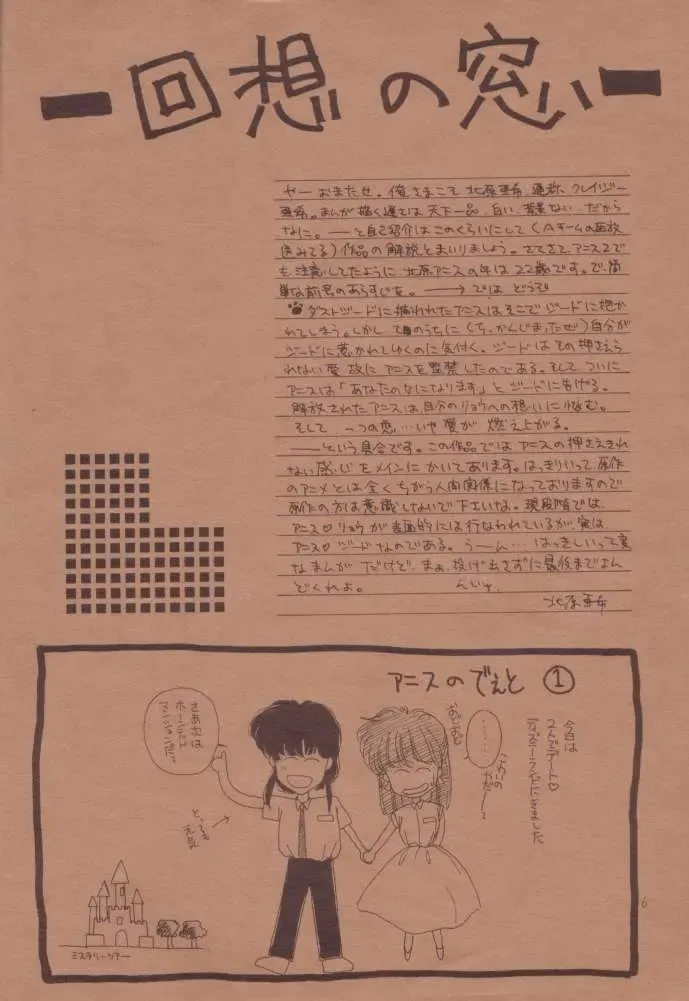 回想の窓
ヤーおまたせ。俺さまこそ北原亜希、通称、クレイジー
亜希。まんが描く速さは天下一品、白い、背景ない、だから
なに。――と自己紹介はこのくらいにして(Aチームの再放
送みてる)作品の解説とまいりましょう。さてさて、アニス2で
も注意してたように北原アニスの年は22歳です。で、簡
単な前号のあらすじを。――→では どうぞ
ダストジードに捕われたアニスはそこでジードに抱か
れてしまう。しかし そのうちに(ち、かんじまったぜ)自分が
ジードに惹かれてゆくのに気付く。ジードはその押さえら
れない愛故にアニスを監禁したのである。そして ついに
アニスは「あなたのなにになります」とジードに告げる。
解放されたアニスは自分のリョウへの想いに悩む。
そして 一つの恋…いや愛が 燃え上がる。
――という具合です。この作品では アニスの押さえきれ
ない感じをメインにかいてあります。はっきりいって、原作
のアニメとは全くちがう人間関係になっておりますので
原作の方は意識しないで下さいな。現段階では、
アニス♡リョウが表面的には行なわれているが実は、
アニス♡ジードなのである。うーん…はっきしいって変
なまんが だけど まぁ、投げ出さずに最後までよん
どくれよ。 んじゃ、
北原亜希
アニスのでぇと ①
今日は
2人でデート♡
さあ次は
ホーンテッド
マンションだ!
……
ミステリーツアー
6